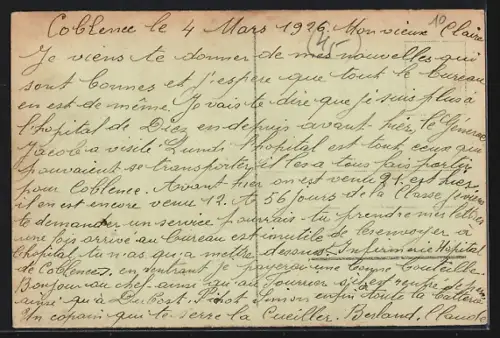 Coblence le 4 Mars 1926. Mon vieux Claire
10
(45)
Je viens te donner de mes nouvelles qui
sont bonnes et j'espère que tout le bureau
en est de même. Je vais te dire que je suis plus à
l'hopital de Diez en depuis avant hier, le Général
Jacob a visité Lundi l'hopital est tout ceux qui
pouvaient se transporter il les a tous fais partir
pour Coblence. Avant hier on est venu 21. est hier
il on est encore venu 12. A 56 jours de la Classe je viens
te demander un service pourrais tu prendre mes lettres
une fois arrivé au bureau est inutile de les envoyer à
l'hopital tu n'as qu'a mettre dessous. Infirmerie Hopital
de Coblences, en rentrant je payerai une bonne bouteille.
Bonjour au chef ainsi qu'au fourrier est rentré de perm
ainsi qu'à Simon enfin toute la batterie
Un copain qui te serre la Cueiller. Bertand, Claude